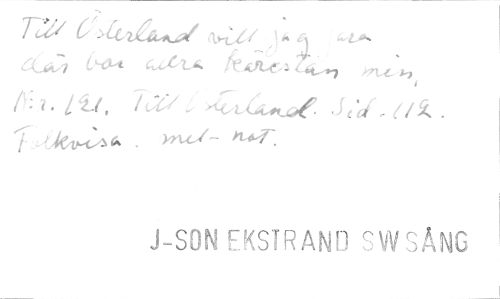 Till Österland vill jag fara
där bor allra kärestan min,
N:r. 121. Till Österland. Sid. 112.
Folkvisa. mel-not.
J-SON EKSTRAND SW SÅNG